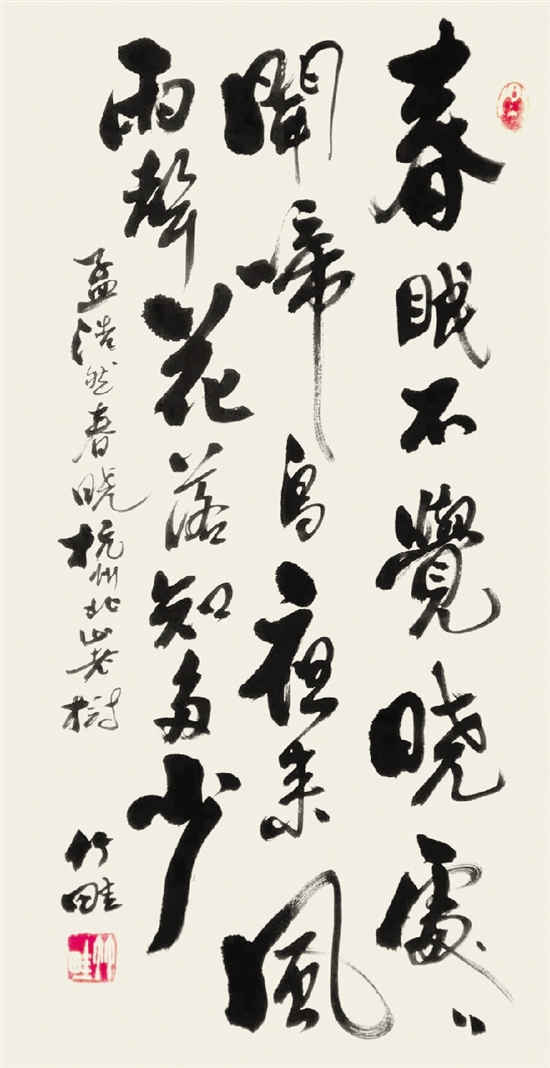 春眠不覺曉處〻
聞啼鳥夜来風
雨聲花落知多少
孟浩然春曉杭州北山老樹
竹畦
竹畦